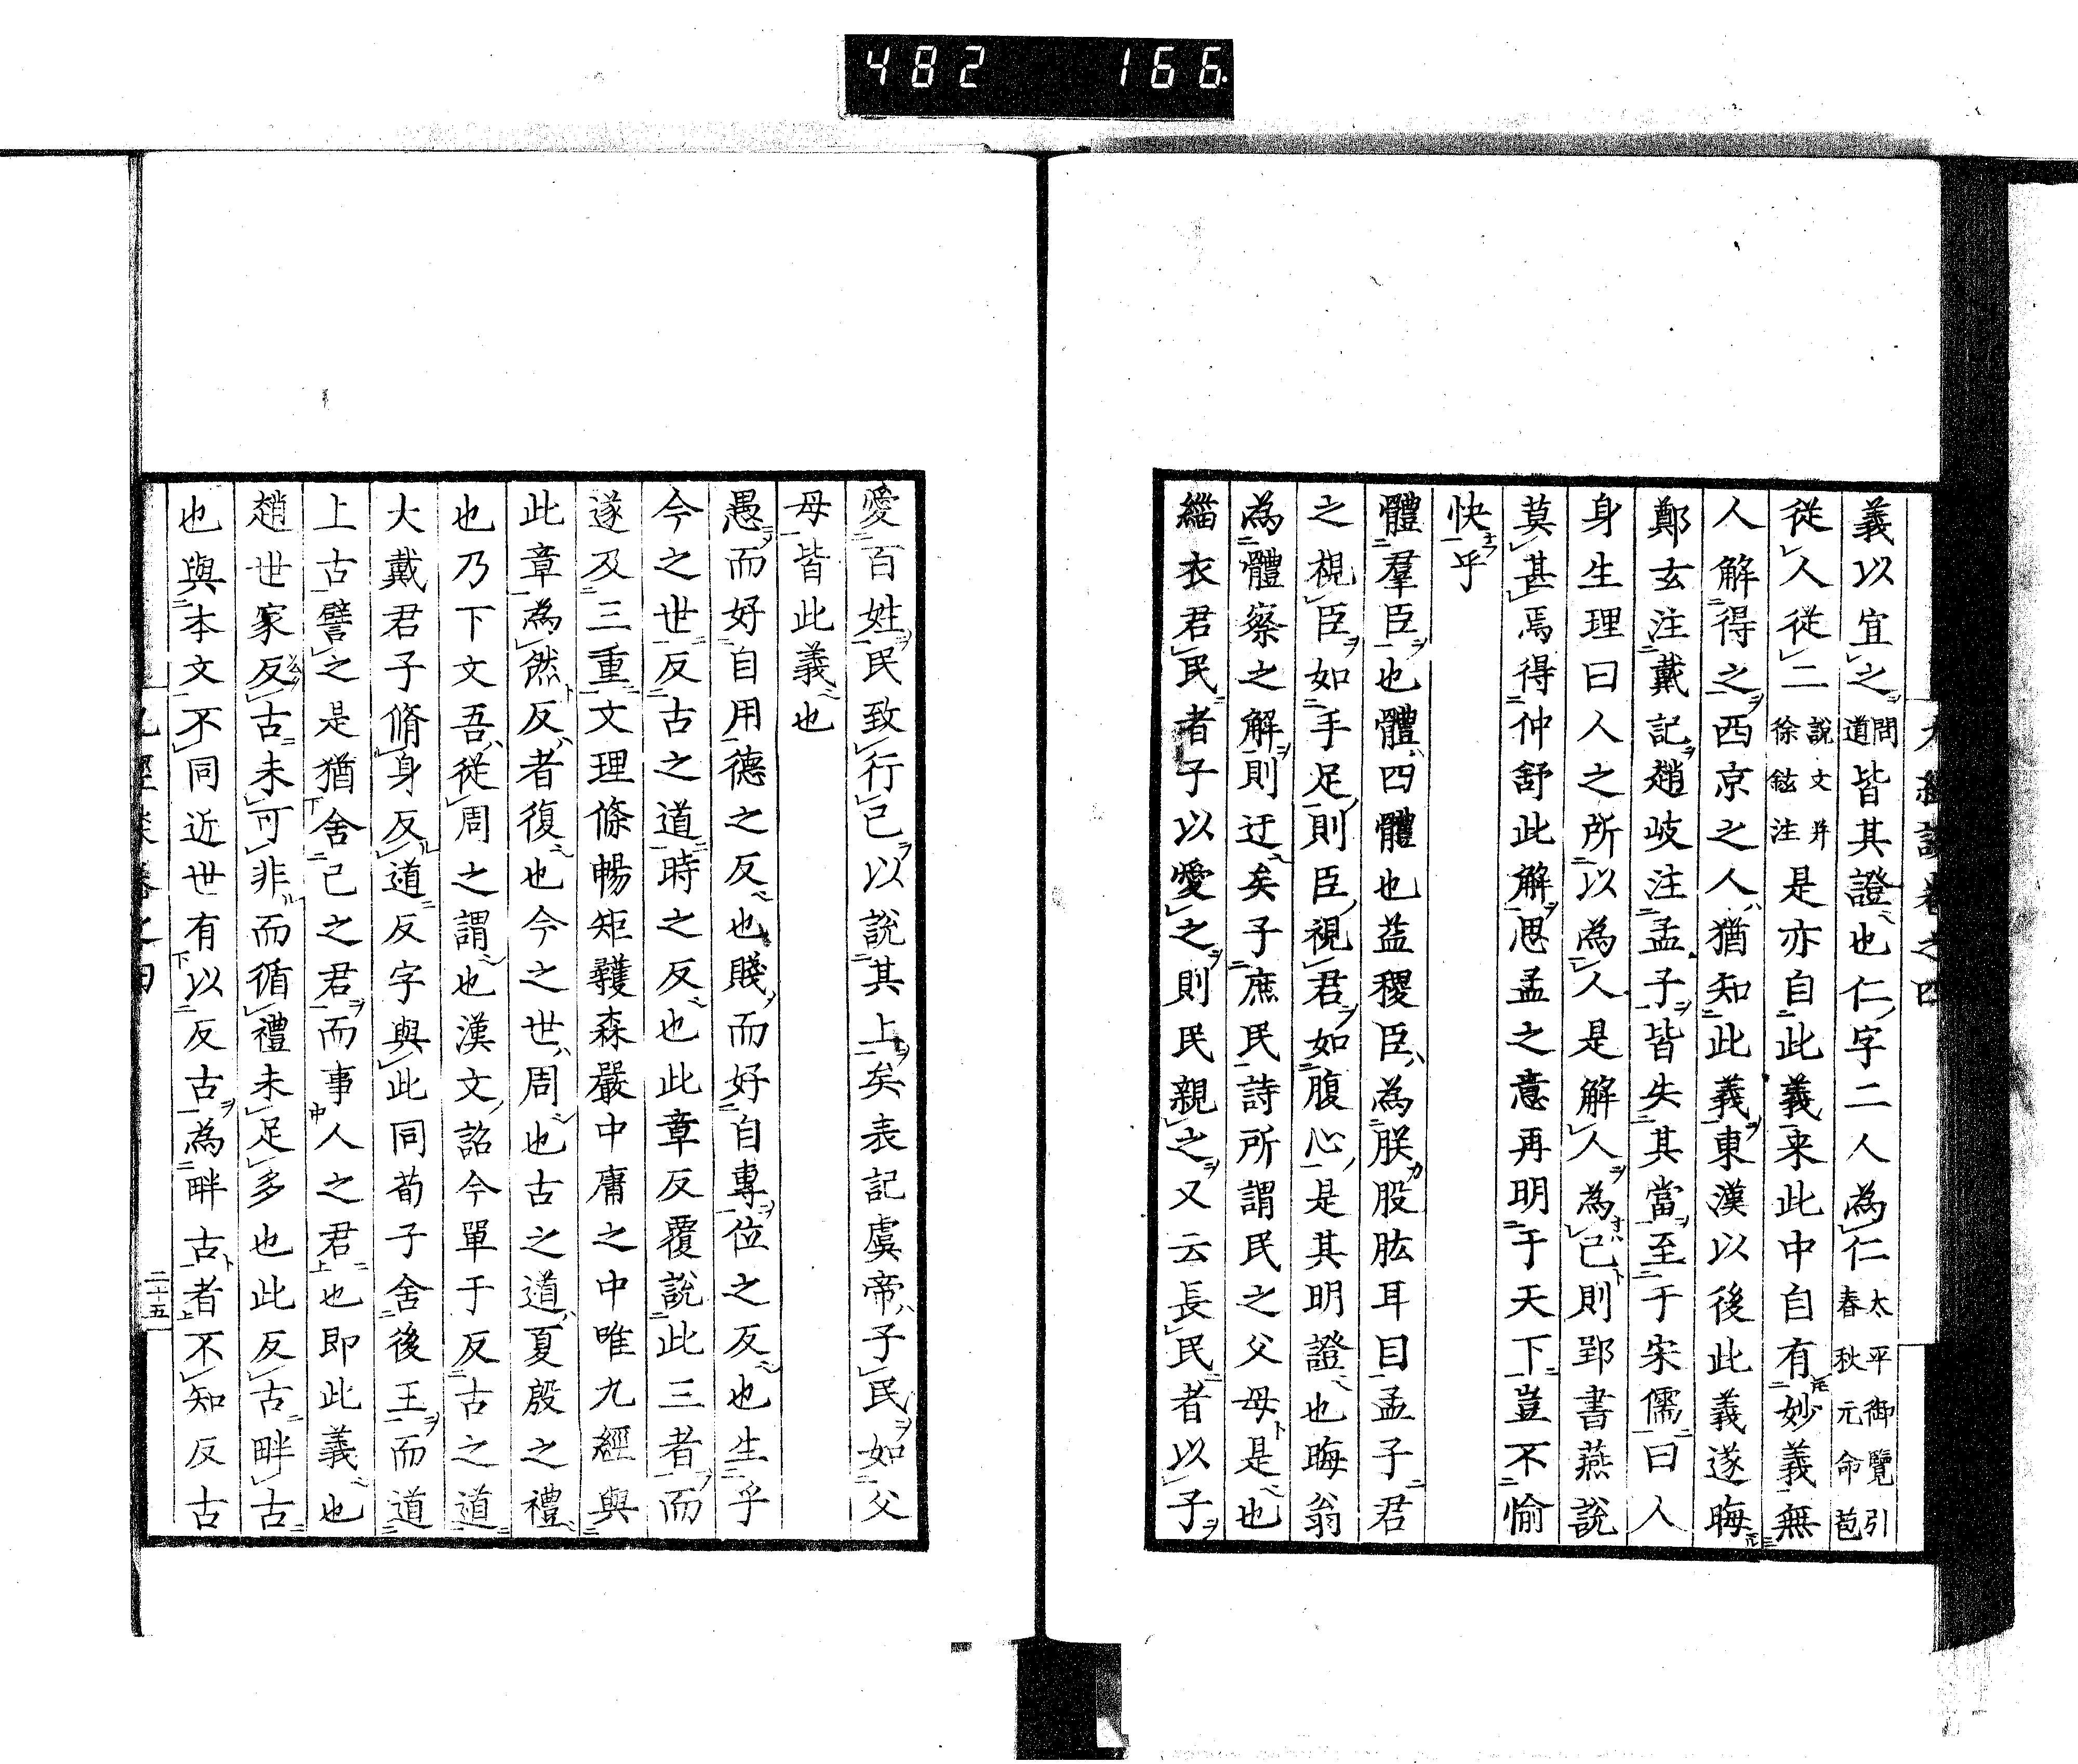 482 166
義以宜之問道皆其證也仁字二人為仁太平御覽引春秋元命苞
從人從二說文并徐鉉注是亦自此義来此中自有妙義無
人解得之西京之人猶知此義東漢以後此義遂晦
鄭玄注戴記趙岐注孟子皆失其當至于宋儒曰人
身生理曰人之所以為人是解人為己則郢書燕說
莫甚焉得仲舒此解思孟之意再明于天下豈不愉
快乎
體羣臣也體四體也益稷臣為朕股肱耳目孟子君
之視臣如手足則臣視君如腹心是其明證也晦翁
為體察之解則迂矣子庶民詩所謂民之父母是也
緇衣君民者子以愛之則民親之又云長民者以子
愛百姓民致行己以說其上矣表記虞帝子民如父
母皆此義也
愚而好自用德之反也賤而好自專位之反也生乎
今之世反古之道時之反也此章反覆說此三者而
遂及三重文理條暢矩矱森嚴中庸之中唯九經與
此章為然反者復也今之世周也古之道夏殷之禮
也乃下文吾從周之謂也漢文詔今單于反古之道
大戴君子脩身反道反字與此同荀子舍後王而道
上古譬之是猶舍己之君而事人之君也即此義也
趙世家反古未可非而循禮未足多也此反古畔古
也與本文不同近世有以反古為畔古者不知反古
二十五